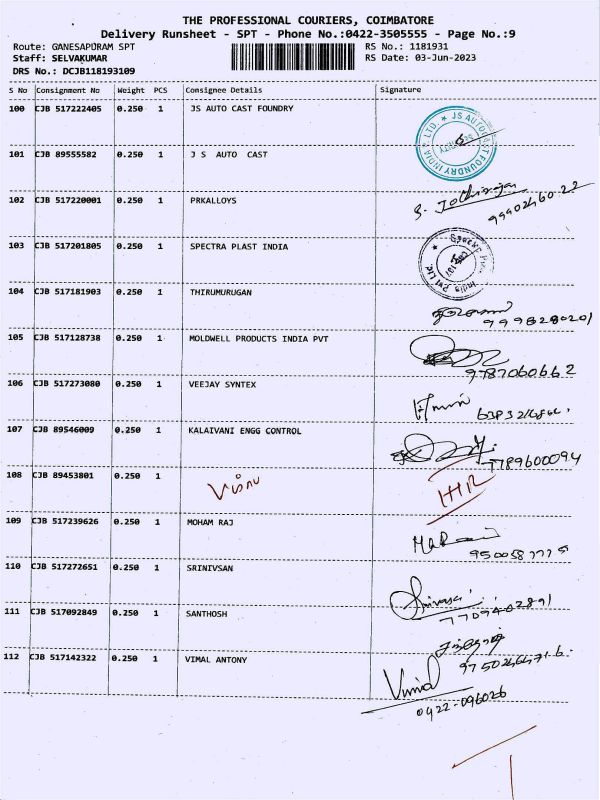 THE PROFESSIONAL COURIERS, COIMBATORE
Delivery Runsheet - SPT - Phone No.:0422-3505555 - Page No.:9
Route: GANESAPURAM SPT RS No.: 1181931
Staff: SELVAKUMAR RS Date: 03-Jun-2023
DRS No.: DCJB118193109
S No Consignment No Weight PCS Consignee Details Signature
100 CJB 517222405 0.250 1 JS AUTO CAST FOUNDRY
101 CJB 89555582 0.250 1 J S AUTO CAST
102 CJB 517220001 0.250 1 PRKALLOYS
103 CJB 517201805 0.250 1 SPECTRA PLAST INDIA
104 CJB 517181903 0.250 1 THIRUMURUGAN
9998280201
105 CJB 517128738 0.250 1 MOLDWELL PRODUCTS INDIA PVT
9787060662
106 CJB 517273080 0.250 1 VEEJAY SYNTEX
107 CJB 89546009 0.250 1 KALAIVANI ENGG CONTROL
108 CJB 89453801 0.250 1
109 CJB 517239626 0.250 1 MOHAM RAJ
110 CJB 517272651 0.250 1 SRINIVSAN
7709402891
111 CJB 517092849 0.250 1 SANTHOSH
112 CJB 517142322 0.250 1 VIMAL ANTONY
Vimal
0422-096026